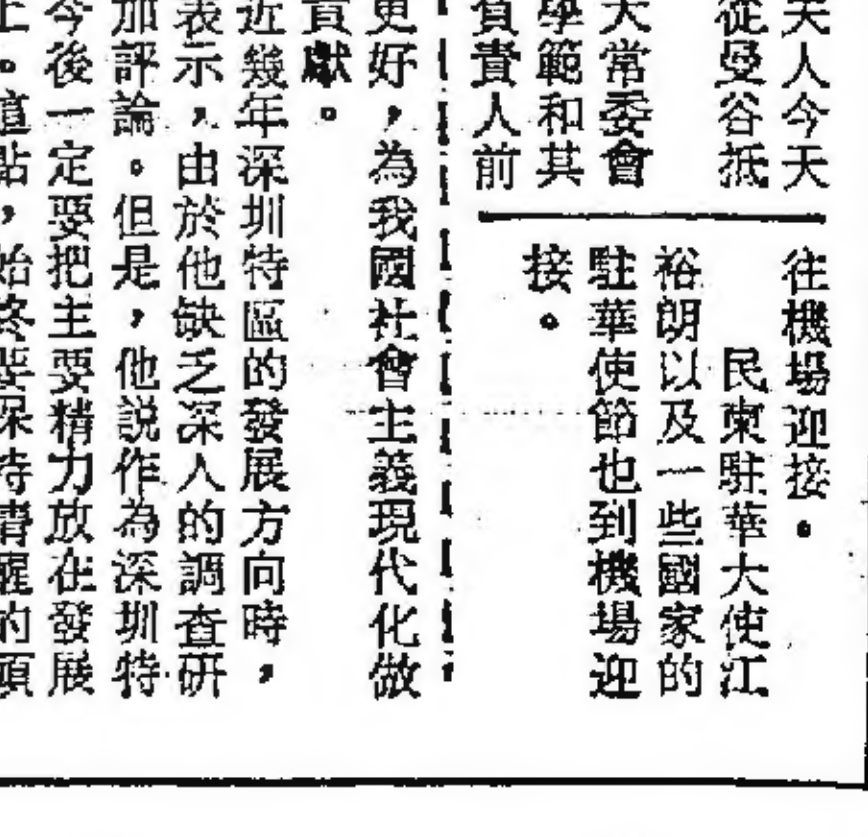 夫人今天
從曼谷抵
大常委會
學範和其
負責人前
往機場迎接。
民柬駐華大使江
裕朗以及一些國家的
駐華使節也到機場迎
接。
更好，為我國社會主義現代化做
貢獻。
近幾年深圳特區的發展方向時，
表示，由於他缺乏深入的調查研
加評論。但是，他說作為深圳特
今後一定要把主要精力放在發展
上。這點，始終要保持清醒的頭